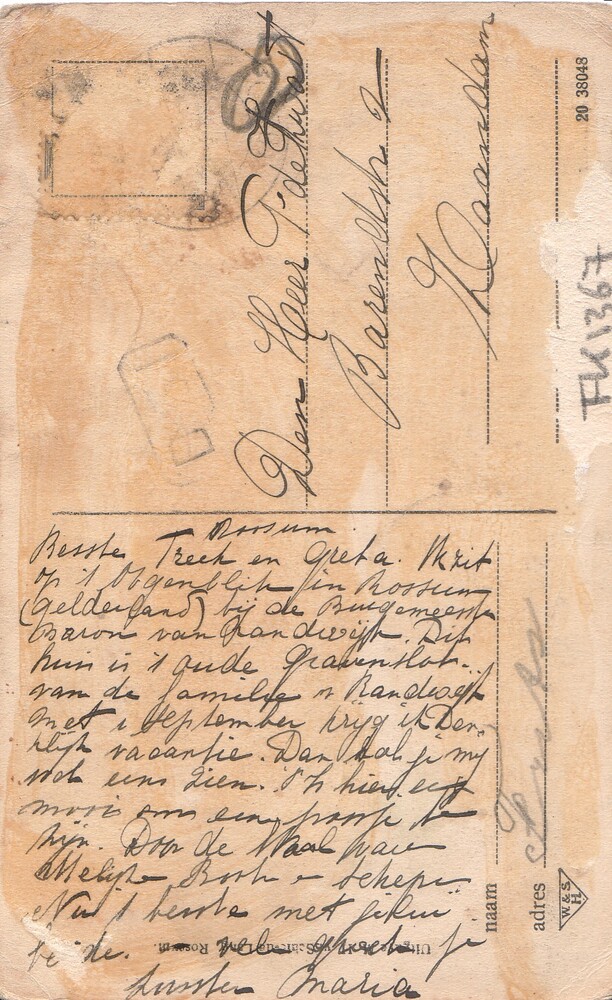 Den Heer T. de
Barendsh. 2
Zaandam
20 38048
FK1367
Rossum.
Beste Treek en Greta. Ik zit
op 't Oogenblik in Rossum
(Gelderland) bij de Burgemeester
Baron van Randwijk. Dit
huis is 't oude Gravenslot
van de familie v Randwijk
met 1 September krijg ik
vacantie. Dan zal je mij
wel eens zien. 't Is hier erg
mooi om een poosje te
zijn. Door de Waal
Boote en Schepen
Nu 't beste met jelui
beide. veel je
zuster Maria
naam
adres
W & S
H